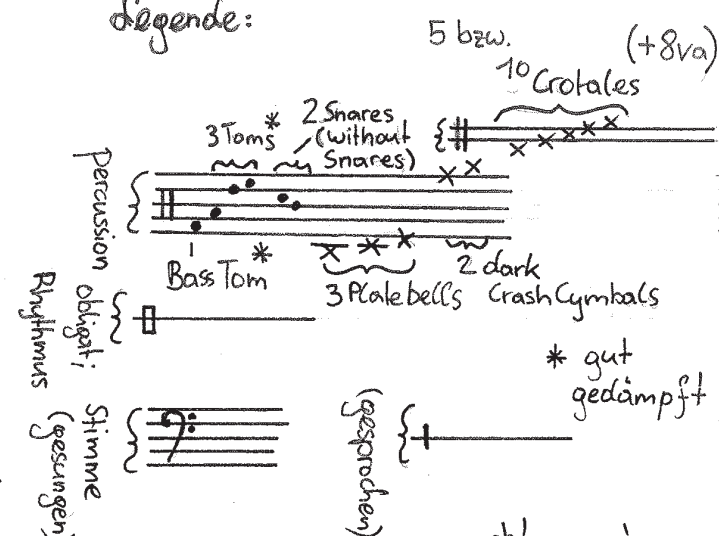 Legende:
5 bzw.
10 Crotales
(+8va)
2 Snares
(without
Snares)
3 Toms*
Percussion
Bass Tom *
3 Platebells
2 dark
Crash Cymbals
Rhythmus
obligat;
* gut
gedämpft
Stimme
(gesungen)
(gesprochen)